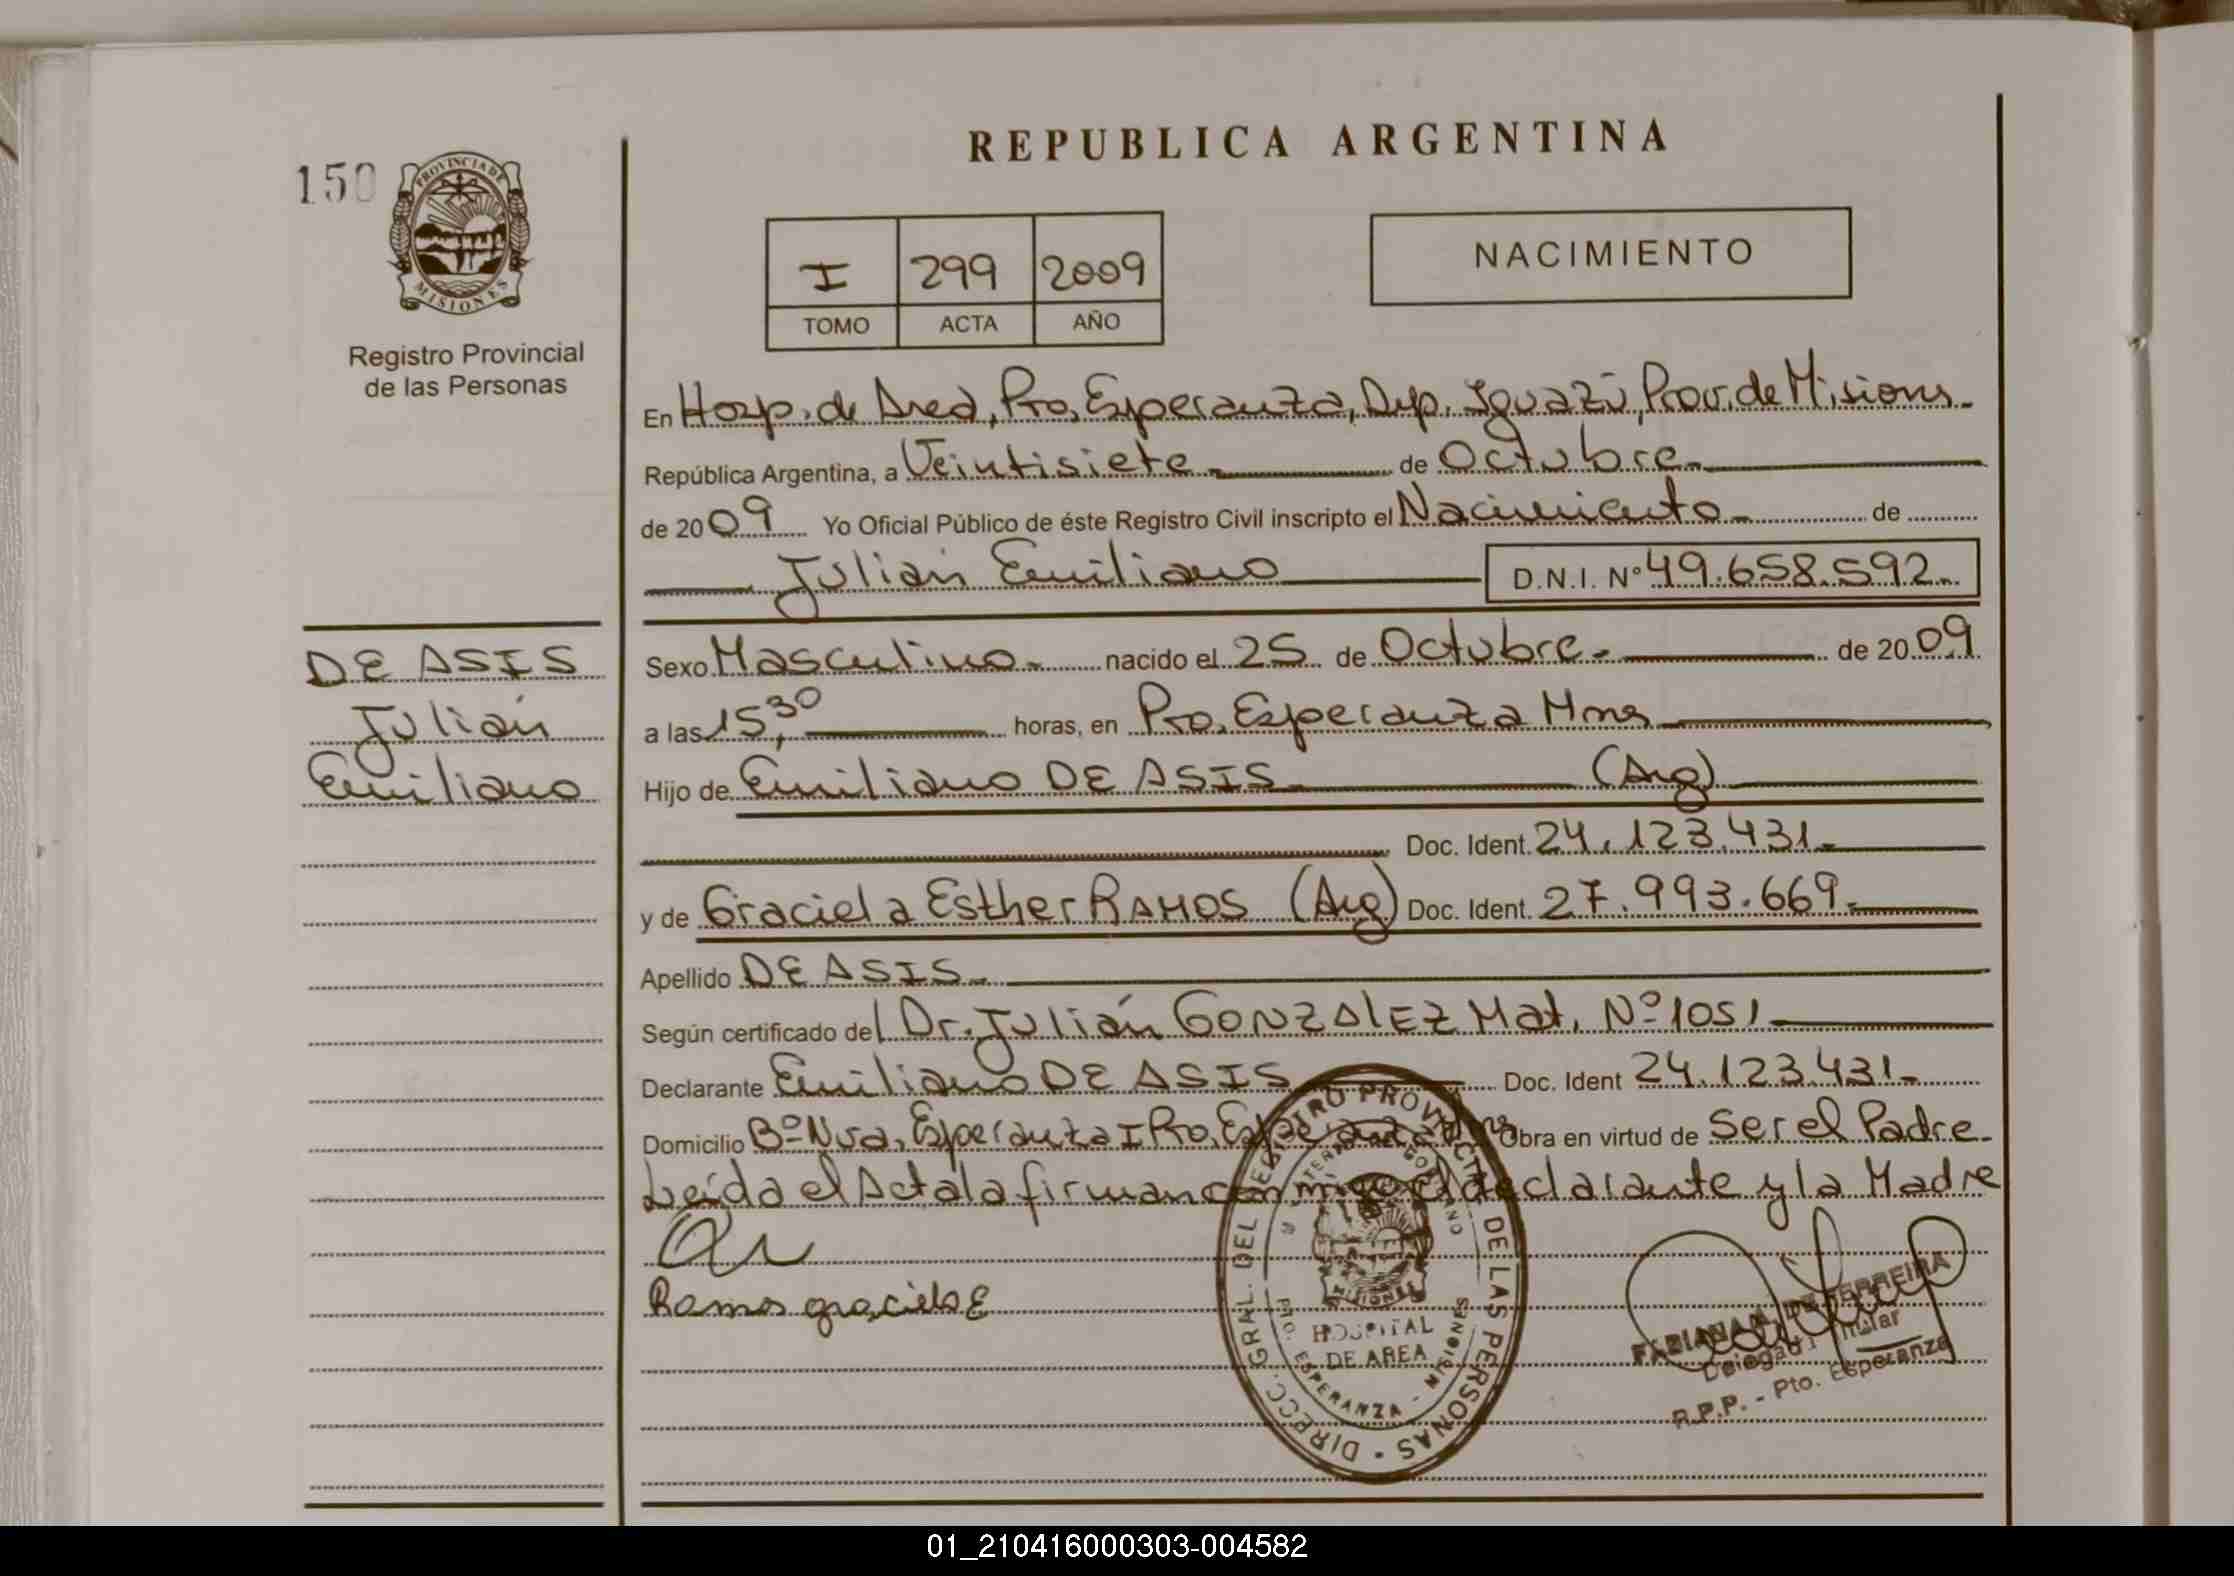 REPUBLICA ARGENTINA
150
PROVINCIA DE
MISIONES
Registro Provincial
de las Personas
I 299 2009
TOMO ACTA AÑO
NACIMIENTO
En Hosp. de Area, Pto. Esperanza, Dep. Iguazú, Prov. de Misiones.
República Argentina, a Veintisiete.- de Octubre.-
de 2009 Yo Oficial Público de éste Registro Civil inscripto el Nacimiento.- de
Julián Emiliano D.N.I. Nº 49.658.592.-
DE ASIS
Julián
Emiliano
Sexo Masculino.- nacido el 25 de Octubre.- de 2009
a las 15,30 horas, en Pto. Esperanza Mnes
Hijo de Emiliano DE ASIS.- (Arg)
Doc. Ident. 24.123.431.-
y de Graciela Esther RAMOS (Arg) Doc. Ident. 27.993.669.-
Apellido DE ASIS.-
Según certificado del Dr. Julián GONZALEZ Mat. Nº 1051.-
Declarante Emiliano DE ASIS Doc. Ident 24.123.431.-
Domicilio Bº Nva. Esperanza I Pto. Esperanza Mns Obra en virtud de Ser el Padre.-
Leída el Acta la firman conmigo el declarante y la Madre
Ramos graciela E
DIRECC. GRAL. DEL REGISTRO PROVINCIAL DE LAS PERSONAS
MISIONES
HOSPITAL
DE AREA
PTO. ESPERANZA - MISIONES
FABIANA DE FERREIRA
Delegada Titular
R.P.P. - Pto. Esperanza
01_210416000303-004582